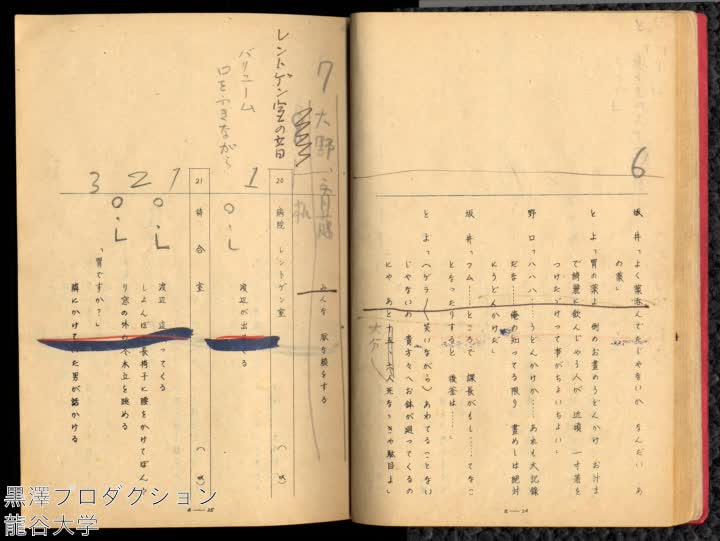 6
坂井「よく薬呑んでたじゃないか なんだい あ
の薬」
とよ「胃の薬よ 例のお昼のうどんかけ お汁ま
で綺麗に飲んじゃう人が 近頃 一寸箸を
つけたゞけって事がちょいちょい」
野口「ハハハ……うどんかけか……あれも大記録
だな……俺の知ってる限り 昼めしは絶対
にうどんかけだ」
坂井「フム……ところで 課長がもし……てなこ
となったりすると 後釜は……」
とよ「ヘゲラ〱笑いながら)あわてることない
じゃないの 貴方々へお鉢が廻ってくるの
にゃ あと十五、六人死なゝきゃ駄目よ」
大分
8—24
みんな 厭な顔をする
7 大野、斎藤
机
レントゲン室の音
バリューム
口をふきながら
20 病院 レントゲン室
1
O.L
渡辺が出てくる
21 待合室
1
O.L
渡辺 迄 ってくる
2
O.L
しょんぼ 長椅子に腰をかけてぼん
り窓の外の冬木立を眺める
3
「胃ですか？」
隣にかけていた男が話かける
8—25
黒澤プロダクション
龍谷大学